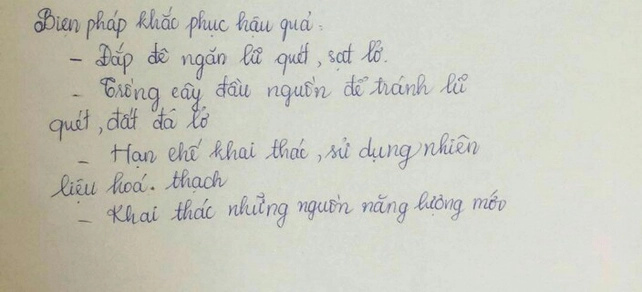 Biện pháp khắc phục hậu quả:
- Đắp đê ngăn lũ quét, sạt lở.
- Trồng cây đầu nguồn để tránh lũ
quét, đất đá lở
- Hạn chế khai thác, sử dụng nhiên
liệu hoá. thạch
- Khai thác những nguồn năng lượng mới